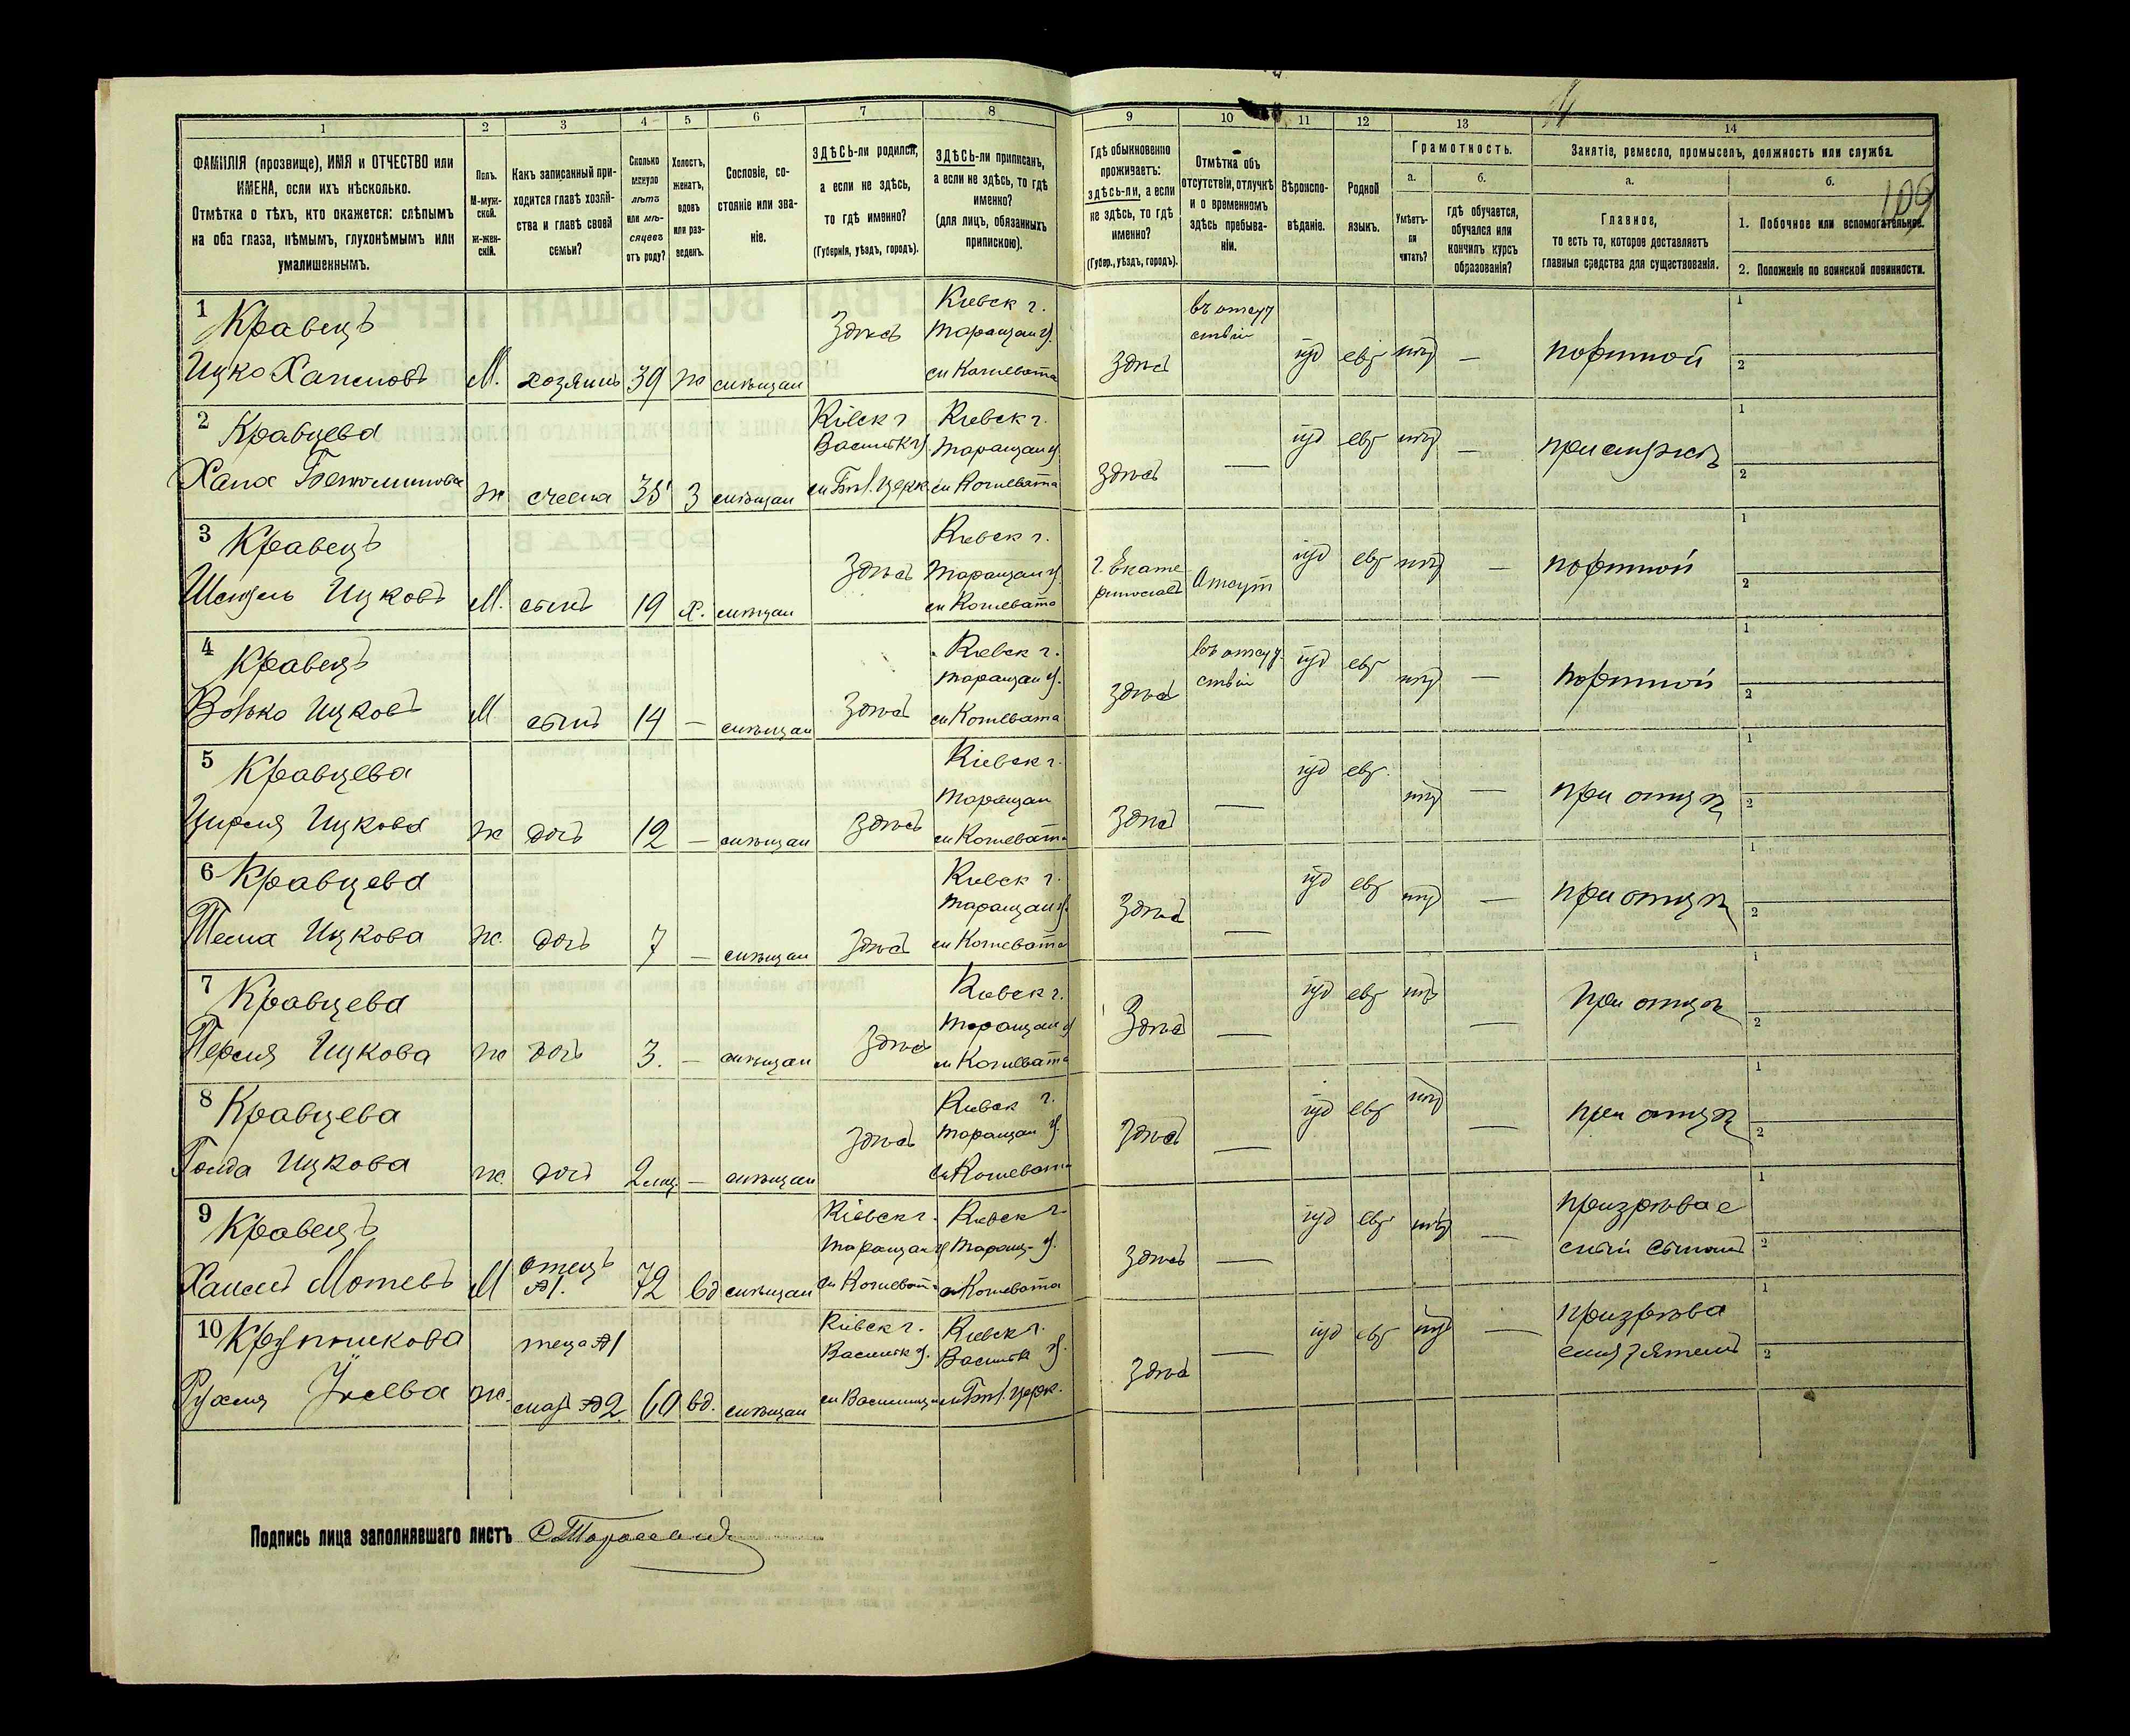 1 2 3 4 5 6 7 8 9 10 11 12 13 14
ФАМИЛІЯ (прозвище), ИМЯ и ОТЧЕСТВО или
ИМЕНА, если ихъ нѣсколько.
Отмѣтка о тѣхъ, кто окажется: слѣпымъ
на оба глаза, нѣмымъ, глухонѣмымъ или
умалишеннымъ.
Полъ.
М-муж-
ской.
Ж-жен-
скій.
Какъ записанный при-
ходится главѣ хозяй-
ства и главѣ своей
семьи?
Сколько
минуло
лѣтъ
или мѣ-
сяцевъ
отъ роду?
Холостъ,
женатъ,
вдовъ
или раз-
веденъ.
Сословіе, со-
стояніе или зва-
ніе.
ЗДѢСЬ-ли родился,
а если не здѣсь,
то гдѣ именно?
(Губернія, уѣздъ, городъ).
ЗДѢСЬ-ли приписанъ,
а если не здѣсь, то гдѣ
именно?
(для лицъ, обязанныхъ
припискою).
Гдѣ обыкновенно
проживаетъ:
здѣсь-ли, а если
не здѣсь, то гдѣ
именно?
(Губер., уѣздъ, городъ).
Отмѣтка объ
отсутствіи, отлучкѣ
и о временномъ
здѣсь пребыва-
ніи.
Вѣроиспо-
вѣданіе.
Родной
языкъ.
Грамотность.
а.
Умѣетъ-
ли
читать?
б.
гдѣ обучается,
обучался или
кончилъ курсъ
образованія?
Занятіе, ремесло, промыселъ, должность или служба.
а.
Главное,
то есть то, которое доставляетъ
главныя средства для существованія.
б.
109
1. Побочное или вспомогательное.
2. Положеніе по воинской повинности.
1 Кравецъ
Ицко Хаимовъ М. хозяинъ 39 ж мѣщан
Здѣсь
Киевск г.
Таращан у.
м Кошевата
Здѣсь
въ отсут
ствіи
іуд евр нѣт — портной
1
2
2 Кравцева
Хана Беньяминова ж жена 35 З мѣщан
Кіевск г
Васильк у.
м Бѣл. Церк.
Киевск г.
Таращан у
м Кошевата
здѣсь — іуд евр нѣт —
1
2
3 Кравецъ
Ицковъ М. сынъ 19 х. мѣщан
Здѣсь
Киевск г.
Таращан у
м Кошевата
г. Екате
ринослав
Отсут
іуд евр нѣт — портной
1
2
4 Кравецъ
Волько Ицковъ М сынъ 14 — мѣщан
Здѣсь
Киевск г.
Таращан у.
м Кошевата
здѣсь
въ отсут
ствіи
іуд евр нѣт — портной
1
2
5 Кравцева
Цирля Ицкова ж дочь 12 — мѣщан
Здѣсь
Кіевск г.
Таращан
м Кошевата
Здѣсь — іуд евр. нѣт — при отцѣ
1
2
6 Кравцева
Ицкова ж. дочь 7 — мѣщан
Здѣсь
Киевск г.
Таращан у.
м Кошевата
Здѣсь — іуд евр нѣт — при отцѣ
1
2
7 Кравцева
Перля Ицкова ж дочь 3. — мѣщан
Здѣсь
Киевск г.
Таращан у
м Кошевата
Здѣсь — іуд евр нѣт — при отцѣ
1
2
8 Кравцева
Голда Ицкова ж. дочь 2 мѣц — мѣщан
Здѣсь
Киевск г.
Таращан у.
м Кошевата
Здѣсь — іуд евр нѣт — при отцѣ
1
2
9 Кравецъ
Хаимъ Мотевъ М
отецъ
№ 1.
72 вд мѣщан
Кіевск г.
Таращан у
м Кошеват.
Киевск г.
Таращ. у.
м Кошевата
Здѣсь — іуд евр нѣт —
призрѣвае
мый сыномъ
1
2
10 Крупникова
Рухля ж.
теща № 1
мат № 2
60 вд. мѣщан
Кіевск г.
Васильк у.
м
Киевск г.
Васильк у.
м Бѣл. Церк.
Здѣсь — іуд евр нѣт —
призрѣва
емая зятемъ
1
2
Подпись лица заполнявшаго листъ